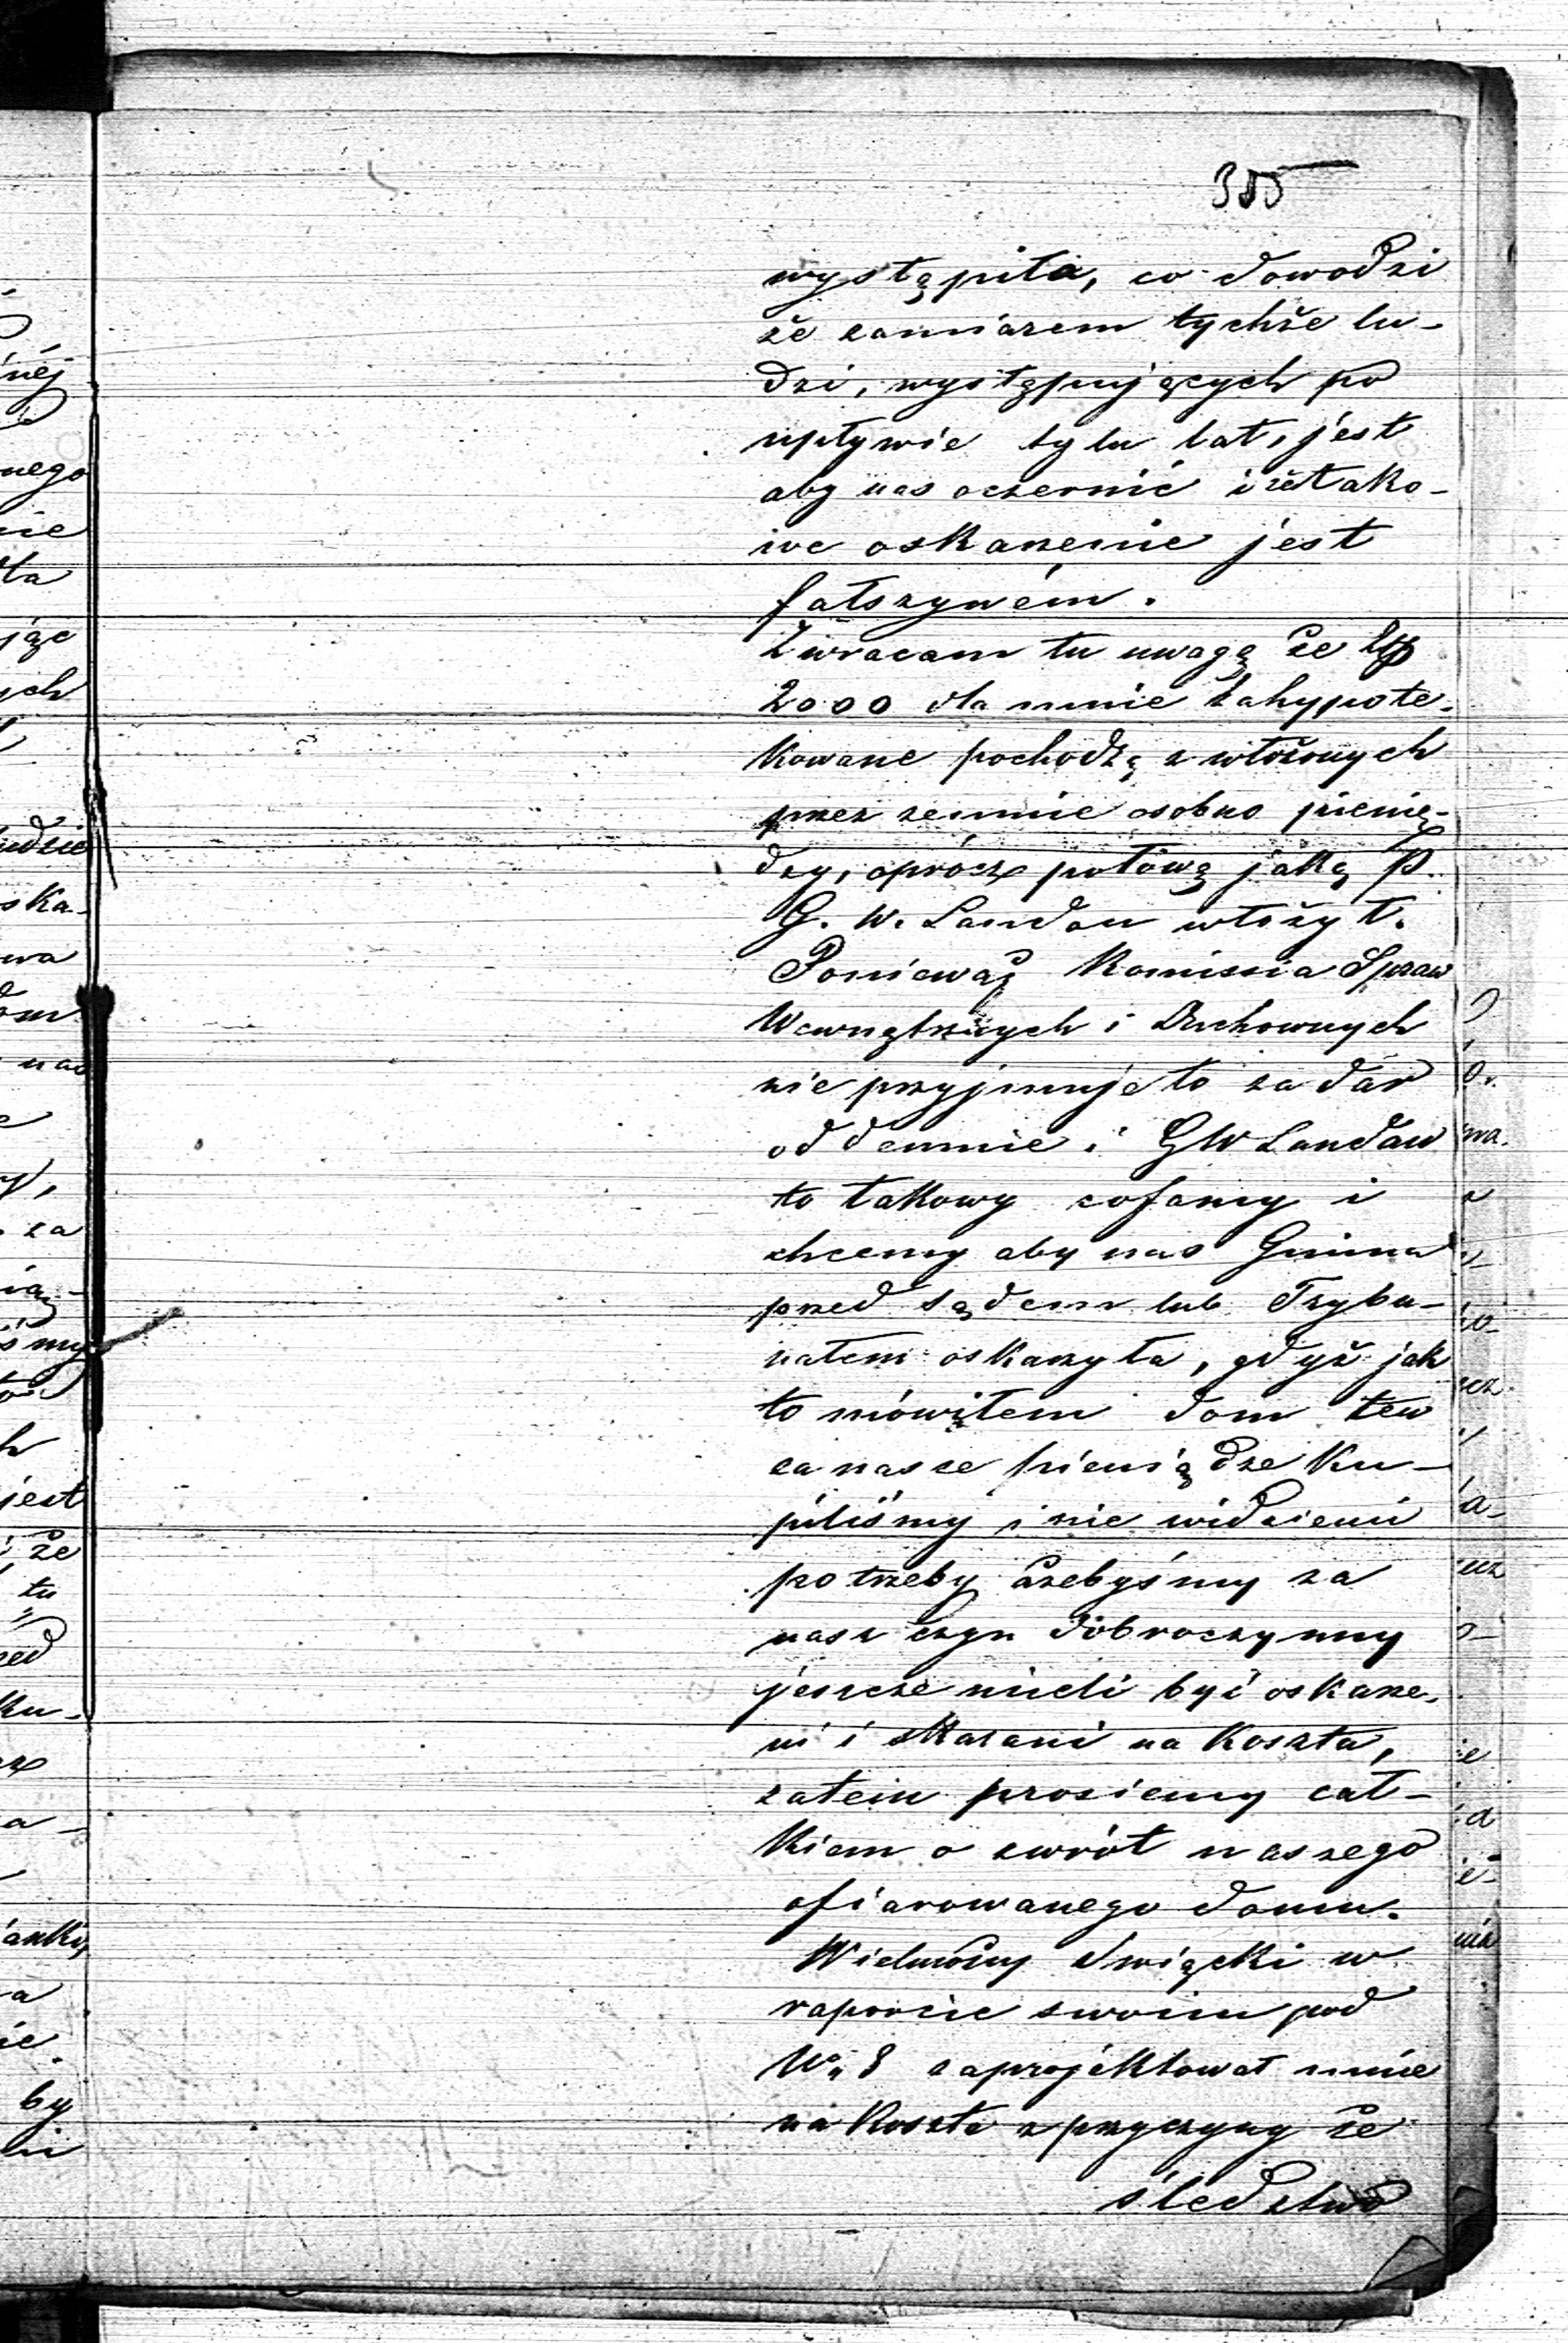 355
wystąpiła, co dowodzi
że zamiarem tychże lu-
dzi, występujących po
upływie tylu lat, jest
aby nas oczernić i że tako-
we oskarżenie jest
fałszywém.
Zwracam tu uwagę że
2000 dla mnie zahypote-
kowane pochodzą z włożonych
przez zemnie osobno pienię-
dzy, oprócz połowę jaką P.
G. W. Landau włożył.
Ponieważ Komissia Spraw
Wewnętrznych i Duchownych
nie przyjmuje to za dar
oddemnie i GW Landau
to takowy cofamy i
chcemy aby nas Gmina
przed sądem lub Trybu-
nałem oskarzyła, gdyż jak
to mówiłem dom ten
za nasze pieniądze ku-
piliśmy i nie widziemi
potrzeby ażebyśmy za
nasz czyn dobroczynny
jeszcze mieli być oskarże-
ni i skazani na koszta,
zatem prosiemy cał-
kiem o zwrót naszego
ofiarowanego domu.
Wielmożny Swięcki w
raporcie swoim pod
8 zaprojektował mnie
na koszta z przyczyny że
śledztwo